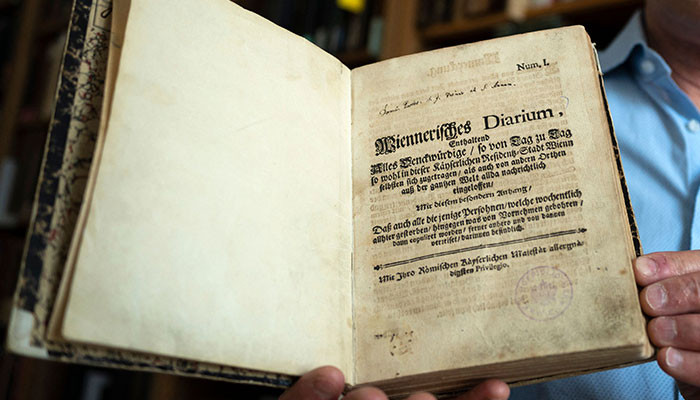 Num. I.
Wiennerisches Diarium,
Enthaltend
Alles Denckwürdige / so von Tag zu Tag
so wohl in dieser Käyserlichen Residentz-Stadt Wienn
selbsten sich zugetragen / als auch von andern Orthen
auß der gantzen Welt allda nachrichtlich
eingeloffen /
Mit diesem besondern Anhang /
Daß auch alle die jenige Persohnen / welche wochentlich
allhier gestorben / hingegen was von Vornehmen gebohren /
dann copulirt worden / ferner anhero und von dannen
verreiset / darinnen befindlich.
Mit Ihro Römischen Käyserlichen Majestät allergnä-
digsten Privilegio.